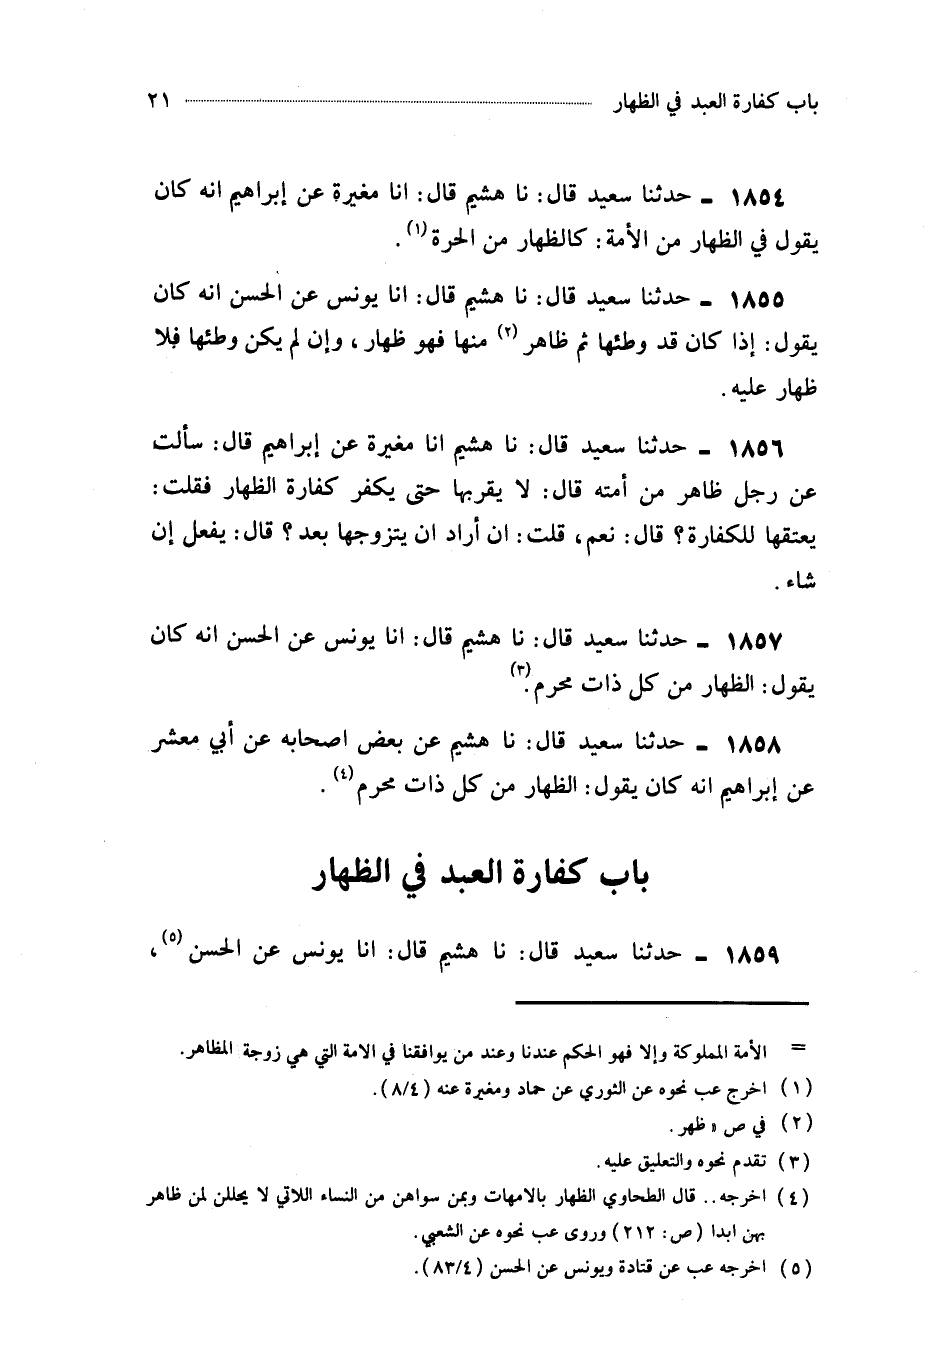 باب كفارة العبد في الظهار ٢١
١٨٥٤ ـ حدثنا سعيد قال: نا هشيم قال: انا مغيرة عن إبراهيم انه كان
يقول في الظهار من الأمة: كالظهار من الحرة(١).
١٨٥٥ ـ حدثنا سعيد قال: نا هشيم قال: انا يونس عن الحسن انه كان
يقول: إذا كان قد وطئها ثم ظاهر(٢) منها فهو ظهار، وإن لم يكن وطئها فلا
ظهار عليه.
١٨٥٦ ـ حدثنا سعيد قال: نا هشيم انا مغيرة عن إبراهيم قال: سألت
عن رجل ظاهر من أمته قال: لا يقربها حتى يكفر كفارة الظهار فقلت:
يعتقها للكفارة؟ قال: نعم، قلت: ان أراد ان يتزوجها بعد؟ قال: يفعل إن
شاء.
١٨٥٧ ـ حدثنا سعيد قال: نا هشيم قال: انا يونس عن الحسن انه كان
يقول: الظهار من كل ذات محرم.(٣)
١٨٥٨ ـ حدثنا سعيد قال: نا هشيم عن بعض اصحابه عن أبي معشر
عن إبراهيم انه كان يقول: الظهار من كل ذات محرم(٤).
باب كفارة العبد في الظهار
١٨٥٩ ـ حدثنا سعيد قال: نا هشيم قال: انا يونس عن الحسن(٥)،
= الأمة المملوكة وإلا فهو الحكم عندنا وعند من يوافقنا في الامة التي هي زوجة المظاهر.
(١) اخرج عب نحوه عن الثوري عن حماد ومغيرة عنه (٨/٤).
(٢) في ص « ظهر.
(٣) تقدم نحوه والتعليق عليه.
(٤) اخرجه.. قال الطحاوي الظهار بالامهات وبمن سواهن من النساء اللاتي لا يحللن لمن ظاهر
بهن ابدا (ص: ٢١٢) وروى عب نحوه عن الشعبي.
(٥) اخرجه عب عن قتادة ويونس عن الحسن (٨٣/٤).